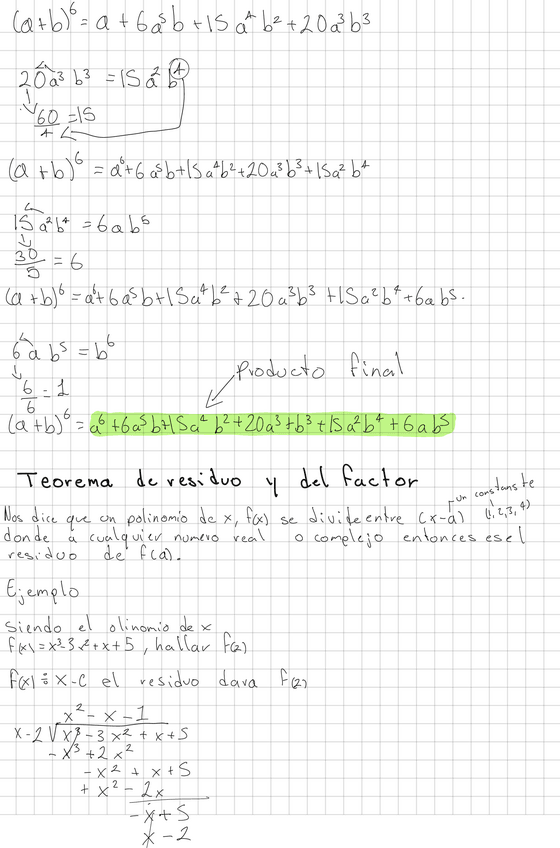 (a+b)⁶ = a + 6a⁵b + 15a⁴b² + 20a³b³
20a³b³ = 15a²b⁴
60/4 = 15
(a+b)⁶ = a⁶+6a⁵b+15a⁴b²+20a³b³+15a²b⁴
15a²b⁴ = 6ab⁵
30/5 = 6
(a+b)⁶ = a⁶+6a⁵b+15a⁴b²+20a³b³+15a²b⁴+6ab⁵.
6ab⁵ = b⁶
6/6 = 1
Producto final
(a+b)⁶ = a⁶+6a⁵b+15a⁴b²+20a³+b³+15a²b⁴+6ab⁵
Teorema de residuo y del factor
un constanste
(1,2,3,4)
Nos dice que un polinomio de x, f(x) se divide entre (x-a)
donde a cualquier numero real o complejo entonces es el
residuo de f(a).
Ejemplo
Siendo el olinomio de x
f(x)=x³-3x²+x+5, hallar f(2)
f(x) ÷ x-c el residuo dara f(2)
x² - x - 1
x-2 √x³-3x²+x+5
-x³+2x²
-x²+x+5
+x²-2x
-x+5
x-2